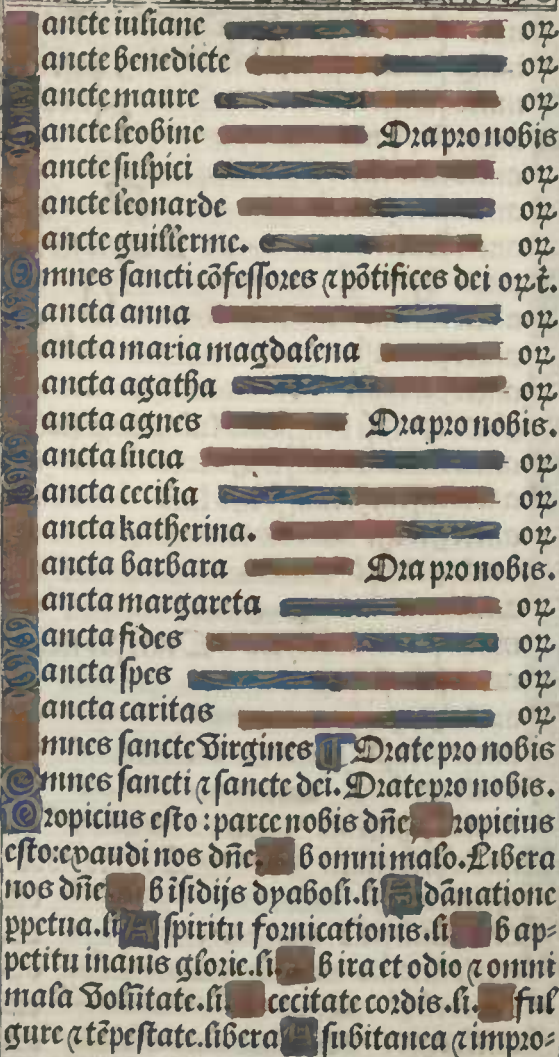 ancte iuliane oꝝ
ancte benedicte oꝝ
ancte maure oꝝ
ancte leobine Ora pro nobis
ancte sulpici oꝝ
ancte leonarde oꝝ
ancte guillerme. oꝝ
Omnes sancti cõfessores ⁊ põtifices dei oꝝt.
ancta anna oꝝ
ancta maria magdalena oꝝ
ancta agatha oꝝ
ancta agnes Ora pro nobis.
ancta lucia oꝝ
ancta cecilia oꝝ
ancta katherina. oꝝ
ancta barbara Ora pro nobis.
ancta margareta oꝝ
ancta fides oꝝ
ancta spes oꝝ
ancta caritas oꝝ
mnes sancte Virgines Orate pro nobis
Omnes sancti ⁊ sancte dei. Orate pro nobis.
ropicius esto : parce nobis dñe ropicius
esto:exaudi nos dñe. b omni malo. Libera
nos dñe b ĩsidijs dyaboli.li A dãnatione
ppetua.li A spiritu fornicationis.li b ap=
petitu inanis glorie.li. b ira et odio ⁊ omni
mala Volũtate.li cecitate cordis.li. ful
gure ⁊ tẽpestate.libera A subitanea ⁊ impro-